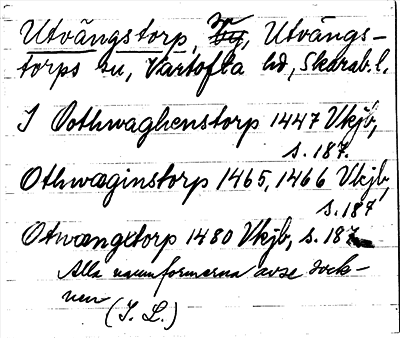 Utvängstorp, By, Utvängs-
torps sn, Vartofta hd, Skarab. l.
I Oothwaghenstorp 1447 Vkjb,
s. 187.
Othwæginstorp 1465, 1466 Vkjb,
s. 187
Otwængxtorp 1480 Vkjb, s. 187
Alla namnformerna avse sock-
nen
(I. L.)